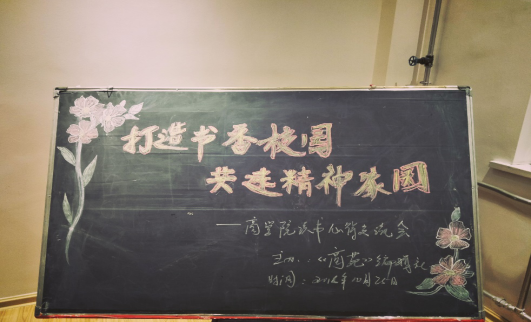 打造书香校园
共建精神家园
——商学院读书心得交流会
主办：《商苑》编辑社
时间：2016年四月25日